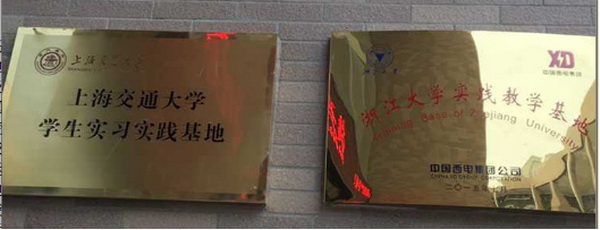 上海交通大学
上海交通大学
学生实习实践基地
XD
中国西电集团
浙江大学实践教学基地
Training Base of Zhejiang University
中国西电集团公司
CHINA XD GROUP CORPORATION
二〇一五年